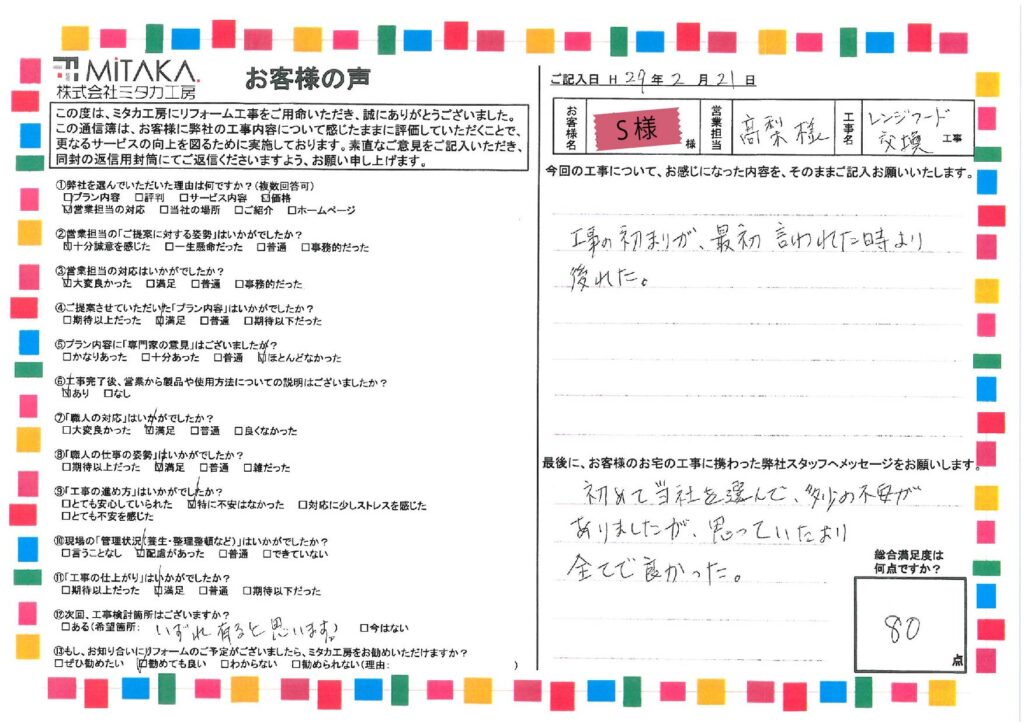 MiTAKA.
株式会社ミタカ工房
お客様の声
この度は、ミタカ工房にリフォーム工事をご用命いただき、誠にありがとうございました。
この通信簿は、お客様に弊社の工事内容について感じたままに評価していただくことで、
更なるサービスの向上を図るために実施しております。素直なご意見をご記入いただき、
同封の返信用封筒にてご返信くださいますよう、お願い申し上げます。
①弊社を選んでいただいた理由は何ですか?(複数回答可)
□プラン内容 □評判 □サービス内容 ☑価格
☑営業担当の対応 □当社の場所 □ご紹介 □ホームページ
②営業担当の「ご提案に対する姿勢」はいかがでしたか?
☑十分誠意を感じた □一生懸命だった □普通 □事務的だった
③営業担当の対応はいかがでしたか?
☑大変良かった □満足 □普通 □事務的だった
④ご提案させていただいた「プラン内容」はいかがでしたか?
□期待以上だった ☑満足 □普通 □期待以下だった
⑤プラン内容に「専門家の意見」はございましたか?
□かなりあった □十分あった □普通 ☑ほとんどなかった
⑥工事完了後、営業から製品や使用方法についての説明はございましたか?
☑あり □なし
⑦「職人の対応」はいかがでしたか?
□大変良かった ☑満足 □普通 □良くなかった
⑧「職人の仕事の姿勢」はいかがでしたか?
□期待以上だった ☑満足 □普通 □雑だった
⑨「工事の進め方」はいかがでしたか?
□とても安心していられた ☑特に不安はなかった □対応に少しストレスを感じた
□とても不安を感じた
⑩現場の「管理状況(養生・整理整頓など)」はいかがでしたか?
□言うことなし ☑配慮があった □普通 □できていない
⑪「工事の仕上がり」はいかがでしたか?
□期待以上だった ☑満足 □普通 □期待以下だった
⑫次回、工事検討箇所はございますか?
□ある(希望箇所: いずれ有ると思います。) □今はない
⑬もし、お知り合いにリフォームのご予定がございましたら、ミタカ工房をお勧めいただけますか?
□ぜひ勧めたい ☑勧めても良い □わからない □勧められない(理由: )
ご記入日 H 29 年 2 月 21 日
お客様名 S様 様 営業担当 高梨様 工事名 レンジフード交換 工事
今回の工事について、お感じになった内容を、そのままご記入お願いいたします。
工事の初まりが、最初 言われた時より
後れた。
最後に、お客様のお宅の工事に携わった弊社スタッフへメッセージをお願いします。
初めて当社を選んで、多少の不安が
ありましたが、思っていたより
全てで良かった。
総合満足度は
何点ですか?
80
点